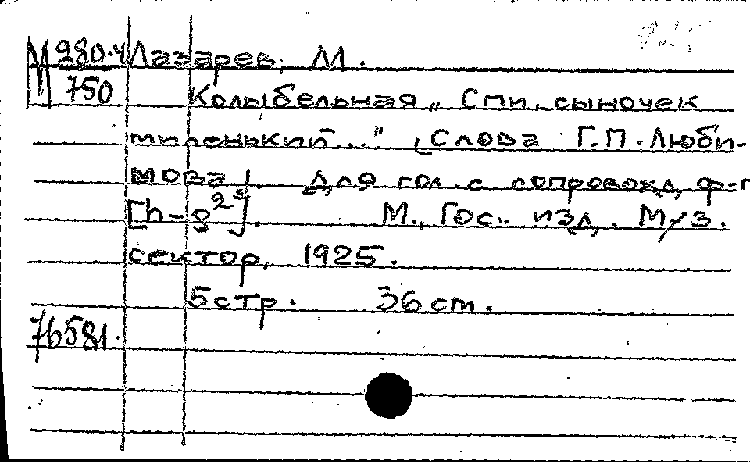 М 280.4 Лазарев, М.
750 Колыбельная „Спи, сыночек
миленький..." [Слова Г.П. Люби-
мова]. Для гол. с сопровожд. ф-п
[h-g²]. М., Гос. изд. Муз.
сектор, 1925.
5 стр. 36 см.
76581.